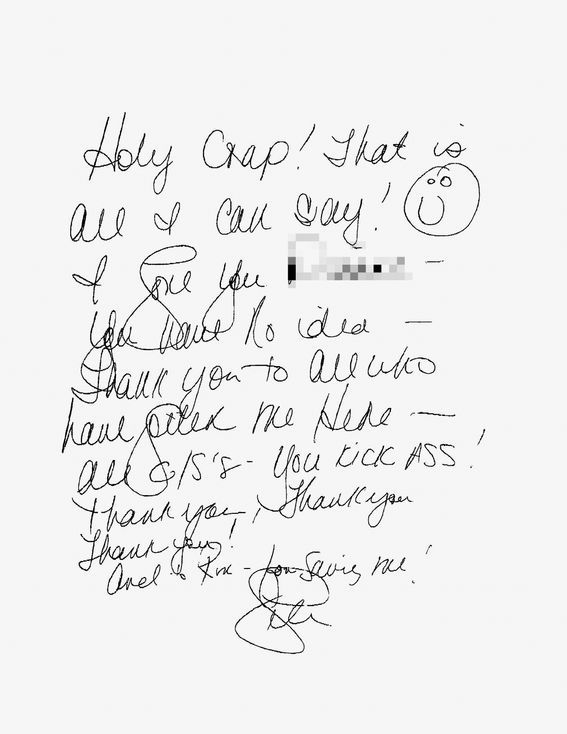 Holy Crap! That is
all I can say!
I Love You —
You have no idea —
Thank you to all who
have gotten me Here —
all G/S's - You KICK ASS!
Thank you, Thank you
Thank you!
And - for Saving me!